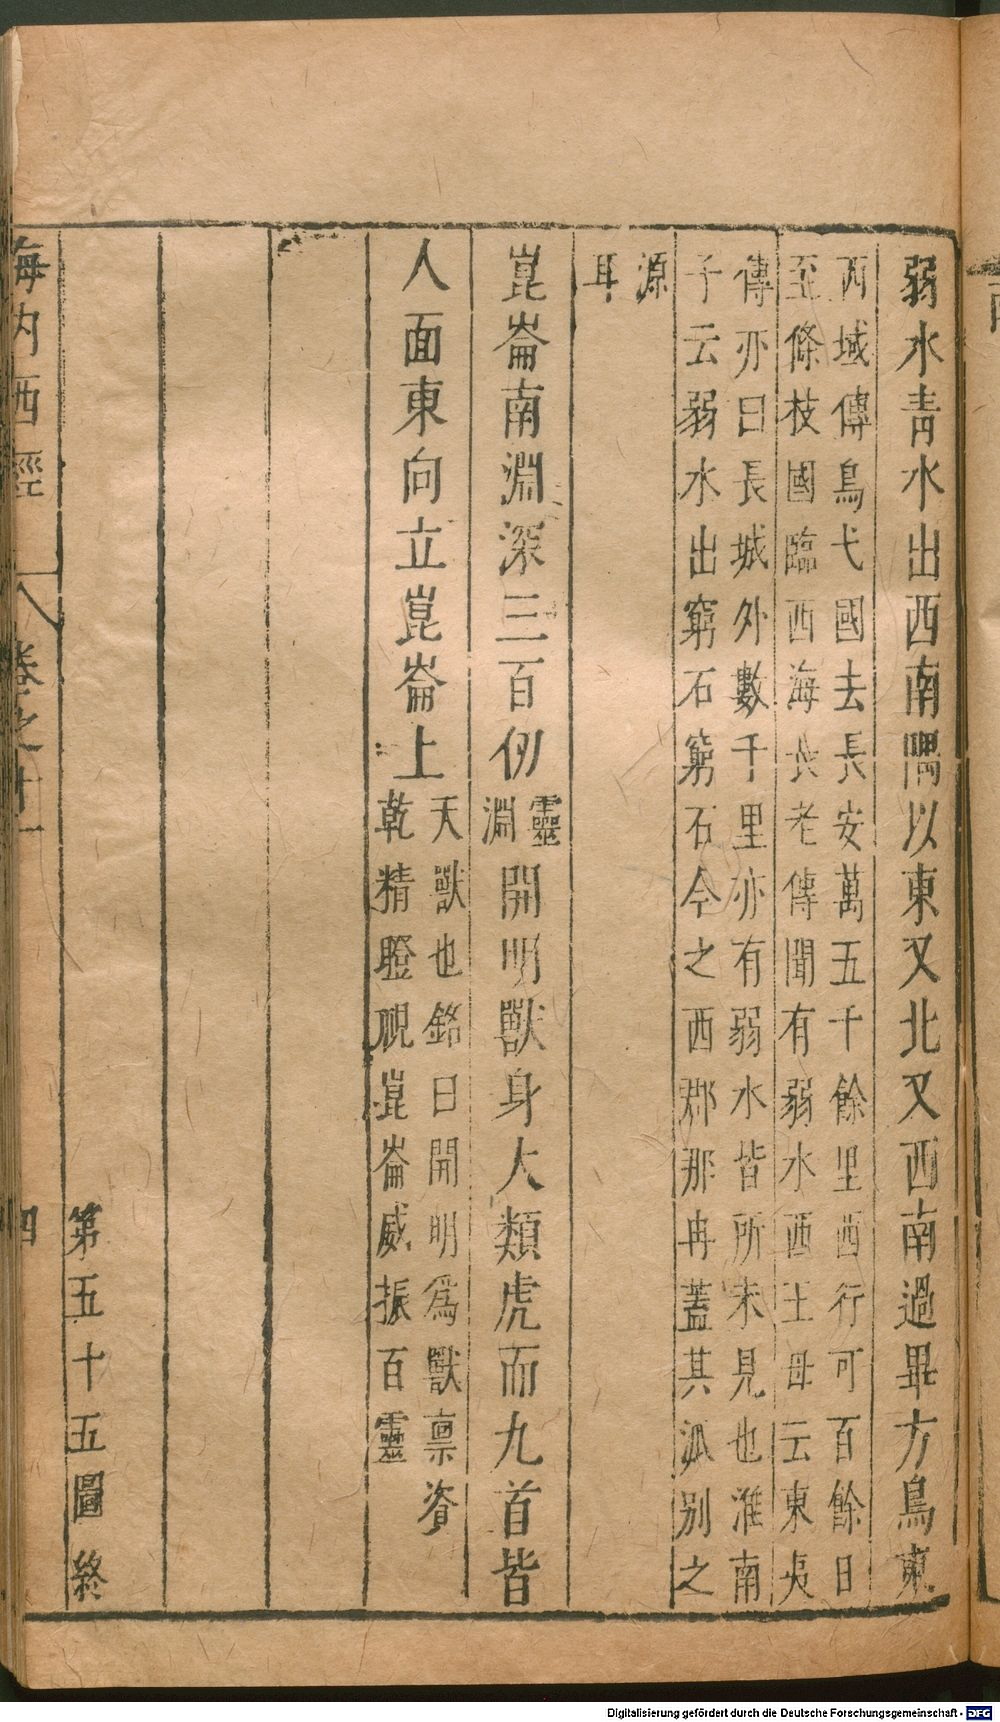 弱水青水出西南隅以東又北又西南過畢方鳥東
西域傳烏弋國去長安萬五千餘里西行可百餘日
至條枝國臨西海長老傳聞有弱水西王母云東夷
傳亦曰長城外數千里亦有弱水皆所未見也淮南
子云弱水出窮石窮石今之西郡那冉蓋其派別之
源
耳
崑崙南淵深三百仞靈淵開明獸身大類虎而九首皆
人面東向立崑崙上天獸也銘曰開明為獸禀資
乾精瞪視崑崙威振百靈
第五十五圖終
海内西經 卷之十一 四
Digitalisierung gefördert durch die Deutsche Forschungsgemeinschaft - DFG